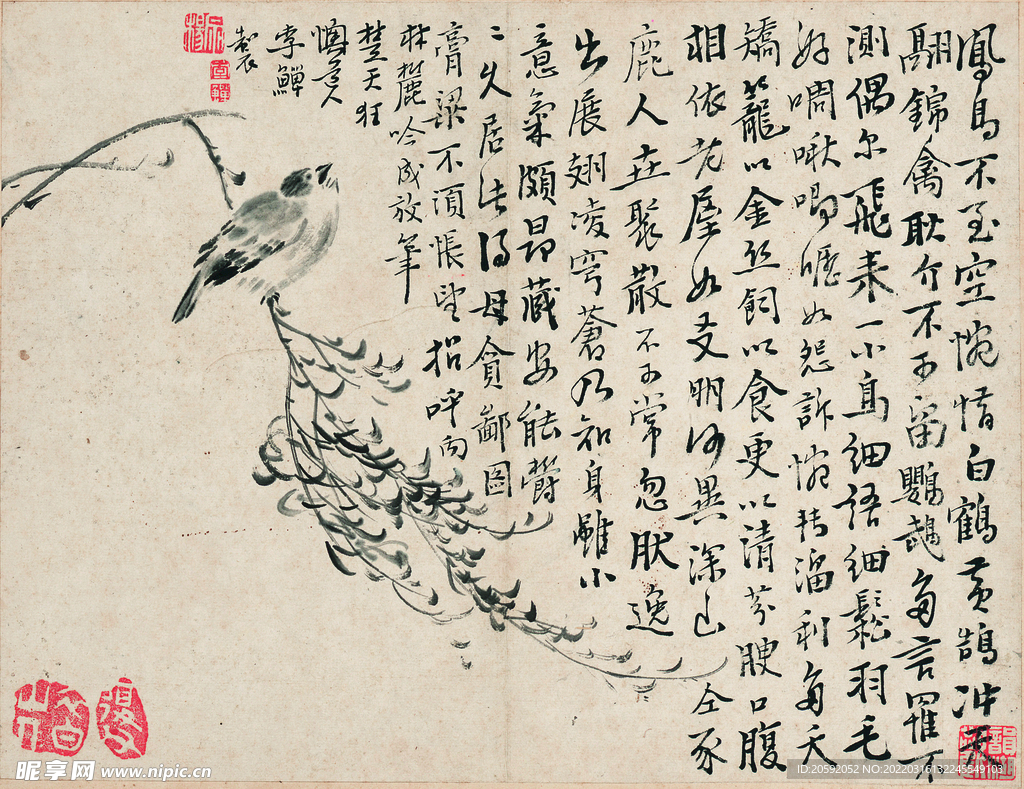 鳳鳥不至空惋惜白鶴黃鵠沖天
翮錦禽耿介不可留鸚鵡多言罹不
測偶尔飛来一小鳥細語細鬆羽毛
好啁啾唧嚦如怨訴惋轉溜利多天
矯籠以金丝飼以食更以清芬腴口腹
相依花屋如友朋何異深山仝豕
鹿人在聚散不可常忽肰逸
出展翅凌穹蒼乃知身雖小
意氣頗昂藏安能欝
二久居此得毋貪鄙圖
膏粱不須悵望招呼向
林麓吟成放筆
楚天狂
懊道人
李鱓
製
昵享网 www.nipic.cn
ID:20592052 NO:20220316132245549103